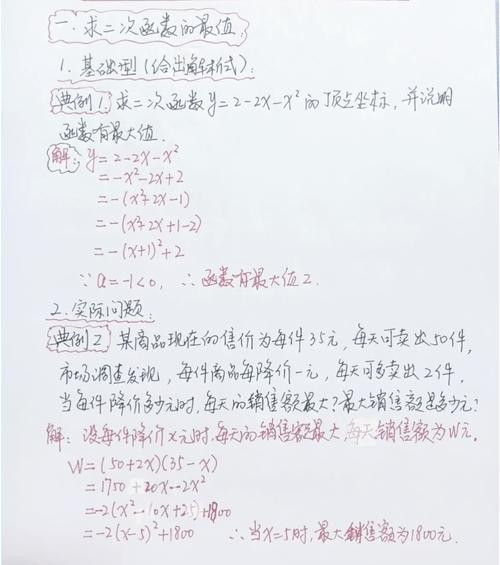 一. 求二次函数的最值.
1. 基础型(给出解析式):
典例1. 求二次函数y=2-2x-x²的顶点坐标, 并说明
函数有最大值.
解: y=2-2x-x²
=-x²-2x+2
=-(x²+2x-1)
=-(x²+2x+1-2)
=-(x+1)²+2
∵a=-1<0, ∴函数有最大值2.
2. 实际问题:
典例2 某商品现在的售价为每件35元, 每天可卖出50件,
市场调查发现, 每件商品每降价一元, 每天可多卖出2件,
当每件降价多少元时, 每天的销售额最大? 最大销售额是多少元?
解: 设每件降价x元时, 每天的销售额最大, 每天销售额为W元.
W=(50+2x)(35-x)
=1750+20x-2x²
=-2(x²-10x+25)+1800
=-2(x-5)²+1800 ∴当x=5时, 最大销售额为1800元.